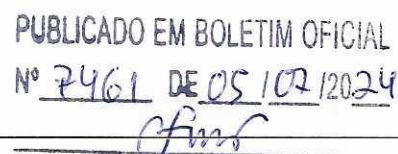 PUBLICADO EM BOLETIM OFICIAL
Nº 7461 DE 05/07/2024